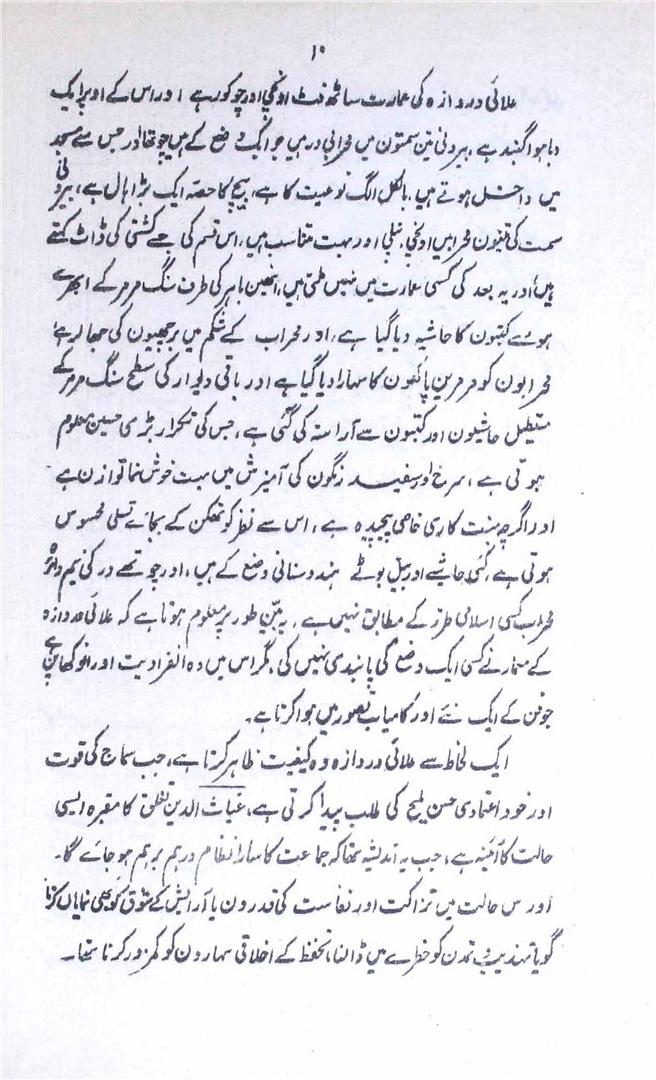 ۱۰
علائی دروازہ کی عمارت ساٹھ فٹ اونچی اور چوکور ہے ، اور اس کے اوپر ایک
دبا ہوا گنبد ہے ، بیرونی تین سمتوں میں محرابی در ہیں جو ایک وضع کے ہیں چوتھا در جس سے مسجد
میں داخل ہوتے ہیں ، بالکل الگ نوعیت کا ہے ، بیچ کا حصہ ایک بڑا ہال ہے ، بیرونی
سمت کی تینوں محرابیں اونچی ، پتلی اور بہت متناسب ہیں ، اس قسم کی جسے کشتی کی ڈاٹ کہتے
ہیں ، اور یہ بعد کی کسی عمارت میں نہیں ملتی ہیں ، انھیں باہر کی طرف سنگ مرمر کے ابھرے
ہوئے کتبوں کا حاشیہ دیا گیا ہے ، اور محراب کے شکم میں برچھیوں کی جھالر ہے
محرابوں کو مرمریں پاکھوں کا سہارا دیا گیا ہے اور باقی دیوار کی سطح سنگ مرمر کے
مستطیل حاشیوں اور کتبوں سے آراستہ کی گئی ہے ، جس کی تکرار بڑی حسین معلوم
ہوتی ہے ، سرخ اور سفید رنگوں کی آمیزش میں بہت خوش نما توازن ہے
اور اگرچہ منبت کاری خاصی پیچیدہ ہے ، اس سے نظر کو تھکن کے بجائے تسلی محسوس
ہوتی ہے ، کئی حاشیے اور بیل بوٹے ہندوستانی وضع کے ہیں ، اور چوتھے در کی نیم دائرہ
محراب کسی اسلامی طرز کے مطابق نہیں ہے ، یہ بیّن طور پر معلوم ہوتا ہے کہ علائی دروازہ
کے معمار نے کسی ایک وضع کی پابندی نہیں کی ، مگر اس میں وہ انفرادیت اور انوکھا پن ہے
جو فن کے ایک نئے اور کامیاب تصور میں ہوا کرتا ہے ۔
ایک لحاظ سے علائی دروازہ وہ کیفیت ظاہر کرتا ہے ، جب سماج کی قوت
اور خود اعتمادی حسن ملیح کی طلب پیدا کرتی ہے ، غیاث الدین تغلق کا مقبرہ ایسی
حالت کا آئینہ ہے ، جب یہ اندیشہ تھا کہ جماعت کا سارا نظام درہم برہم ہو جائے گا ۔
اور س حالت میں نزاکت اور نفاست کی قدروں یا آرایش کے شوق کو بھی نمایاں کرنا
گویا تہذیب و تمدن کو خطرے میں ڈالنا ، تحفظ کے اخلاقی سہاروں کو کمزور کرنا تھا ۔